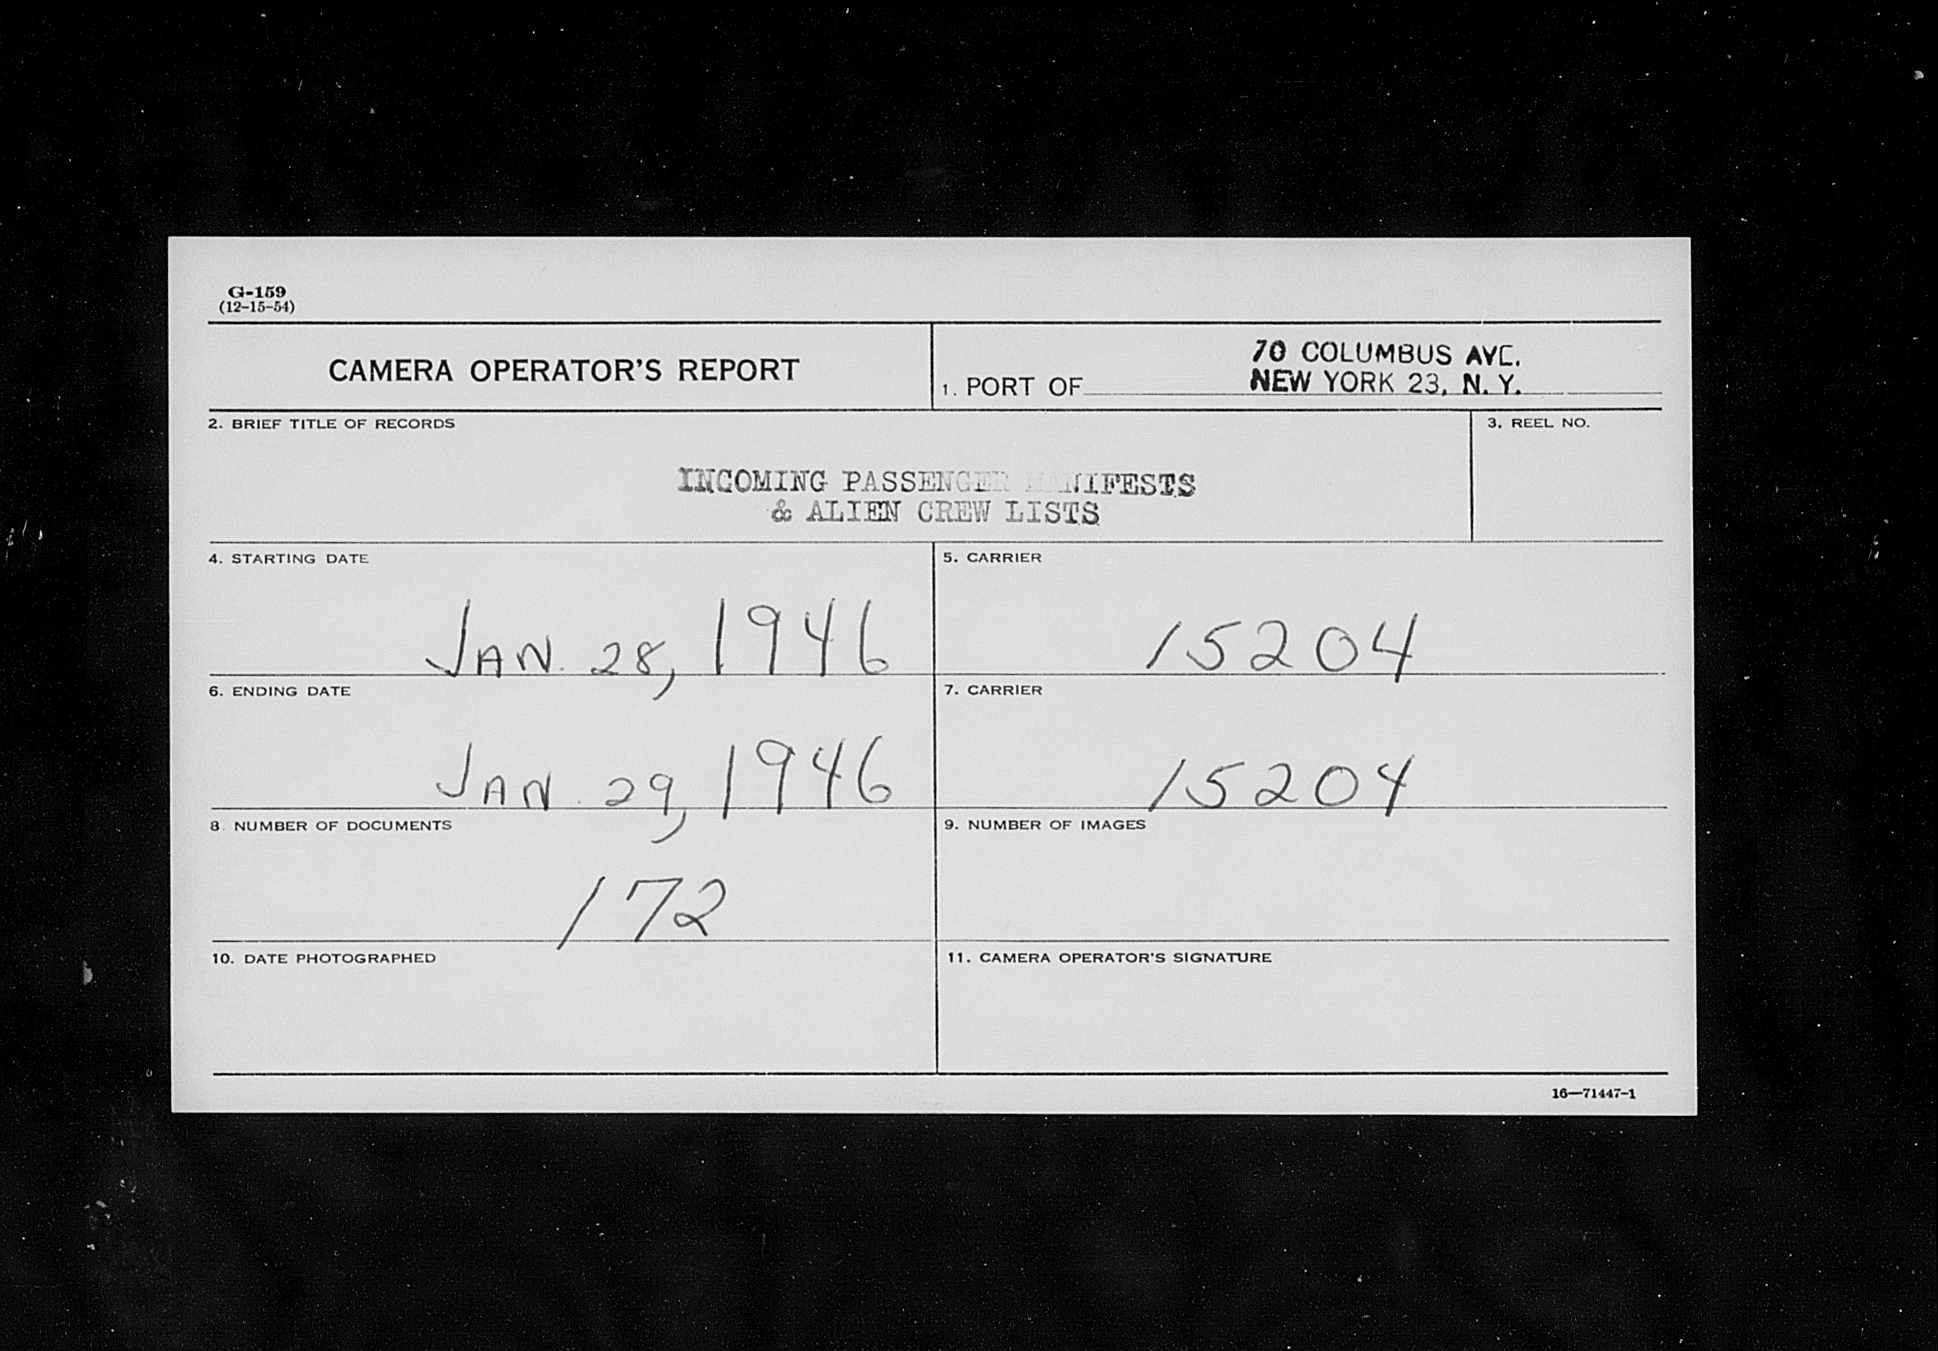 G-159
(12-15-54)
CAMERA OPERATOR'S REPORT
1. PORT OF
70 COLUMBUS AVE.
NEW YORK 23, N. Y.
2. BRIEF TITLE OF RECORDS
3. REEL NO.
INCOMING PASSENGER MANIFESTS
& ALIEN CREW LISTS
4. STARTING DATE
JAN. 28, 1946
5. CARRIER
15204
6. ENDING DATE
JAN. 29, 1946
7. CARRIER
15204
8. NUMBER OF DOCUMENTS
172
9. NUMBER OF IMAGES
10. DATE PHOTOGRAPHED
11. CAMERA OPERATOR'S SIGNATURE
16—71447-1